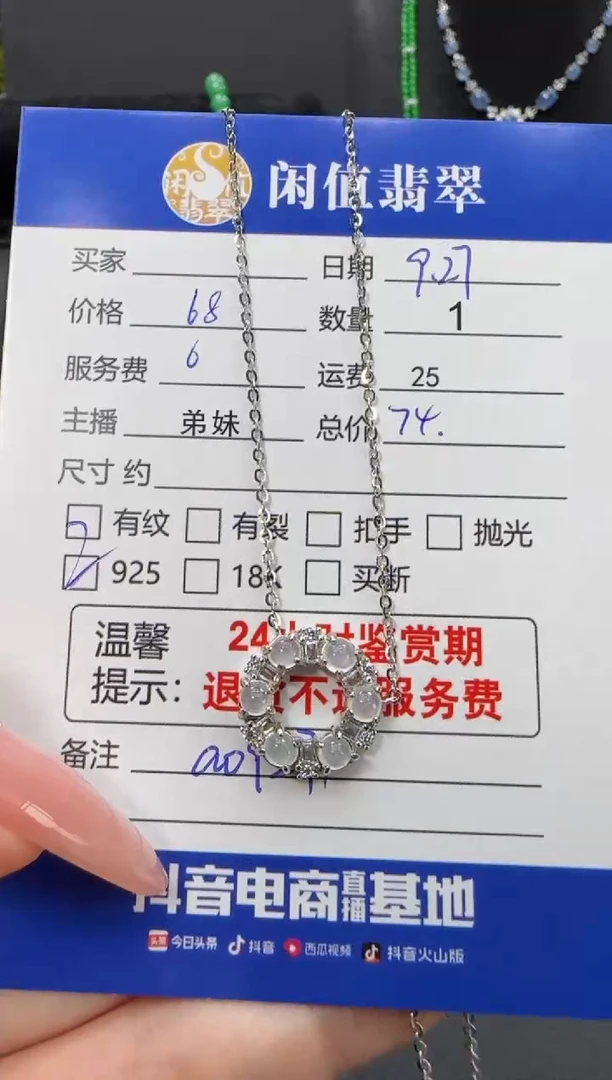 闲值翡翠
闲值翡翠
买家 日期 9.27
价格 68 数量 1
服务费 6 运费 25
主播 弟妹 总价 74.
尺寸 约
有纹 有裂 扣手 抛光
925 18K 买断
温馨 24小时鉴赏期
提示: 退货不退服务费
备注
抖音电商直播基地
头条 今日头条 抖音 西瓜视频 抖音火山版